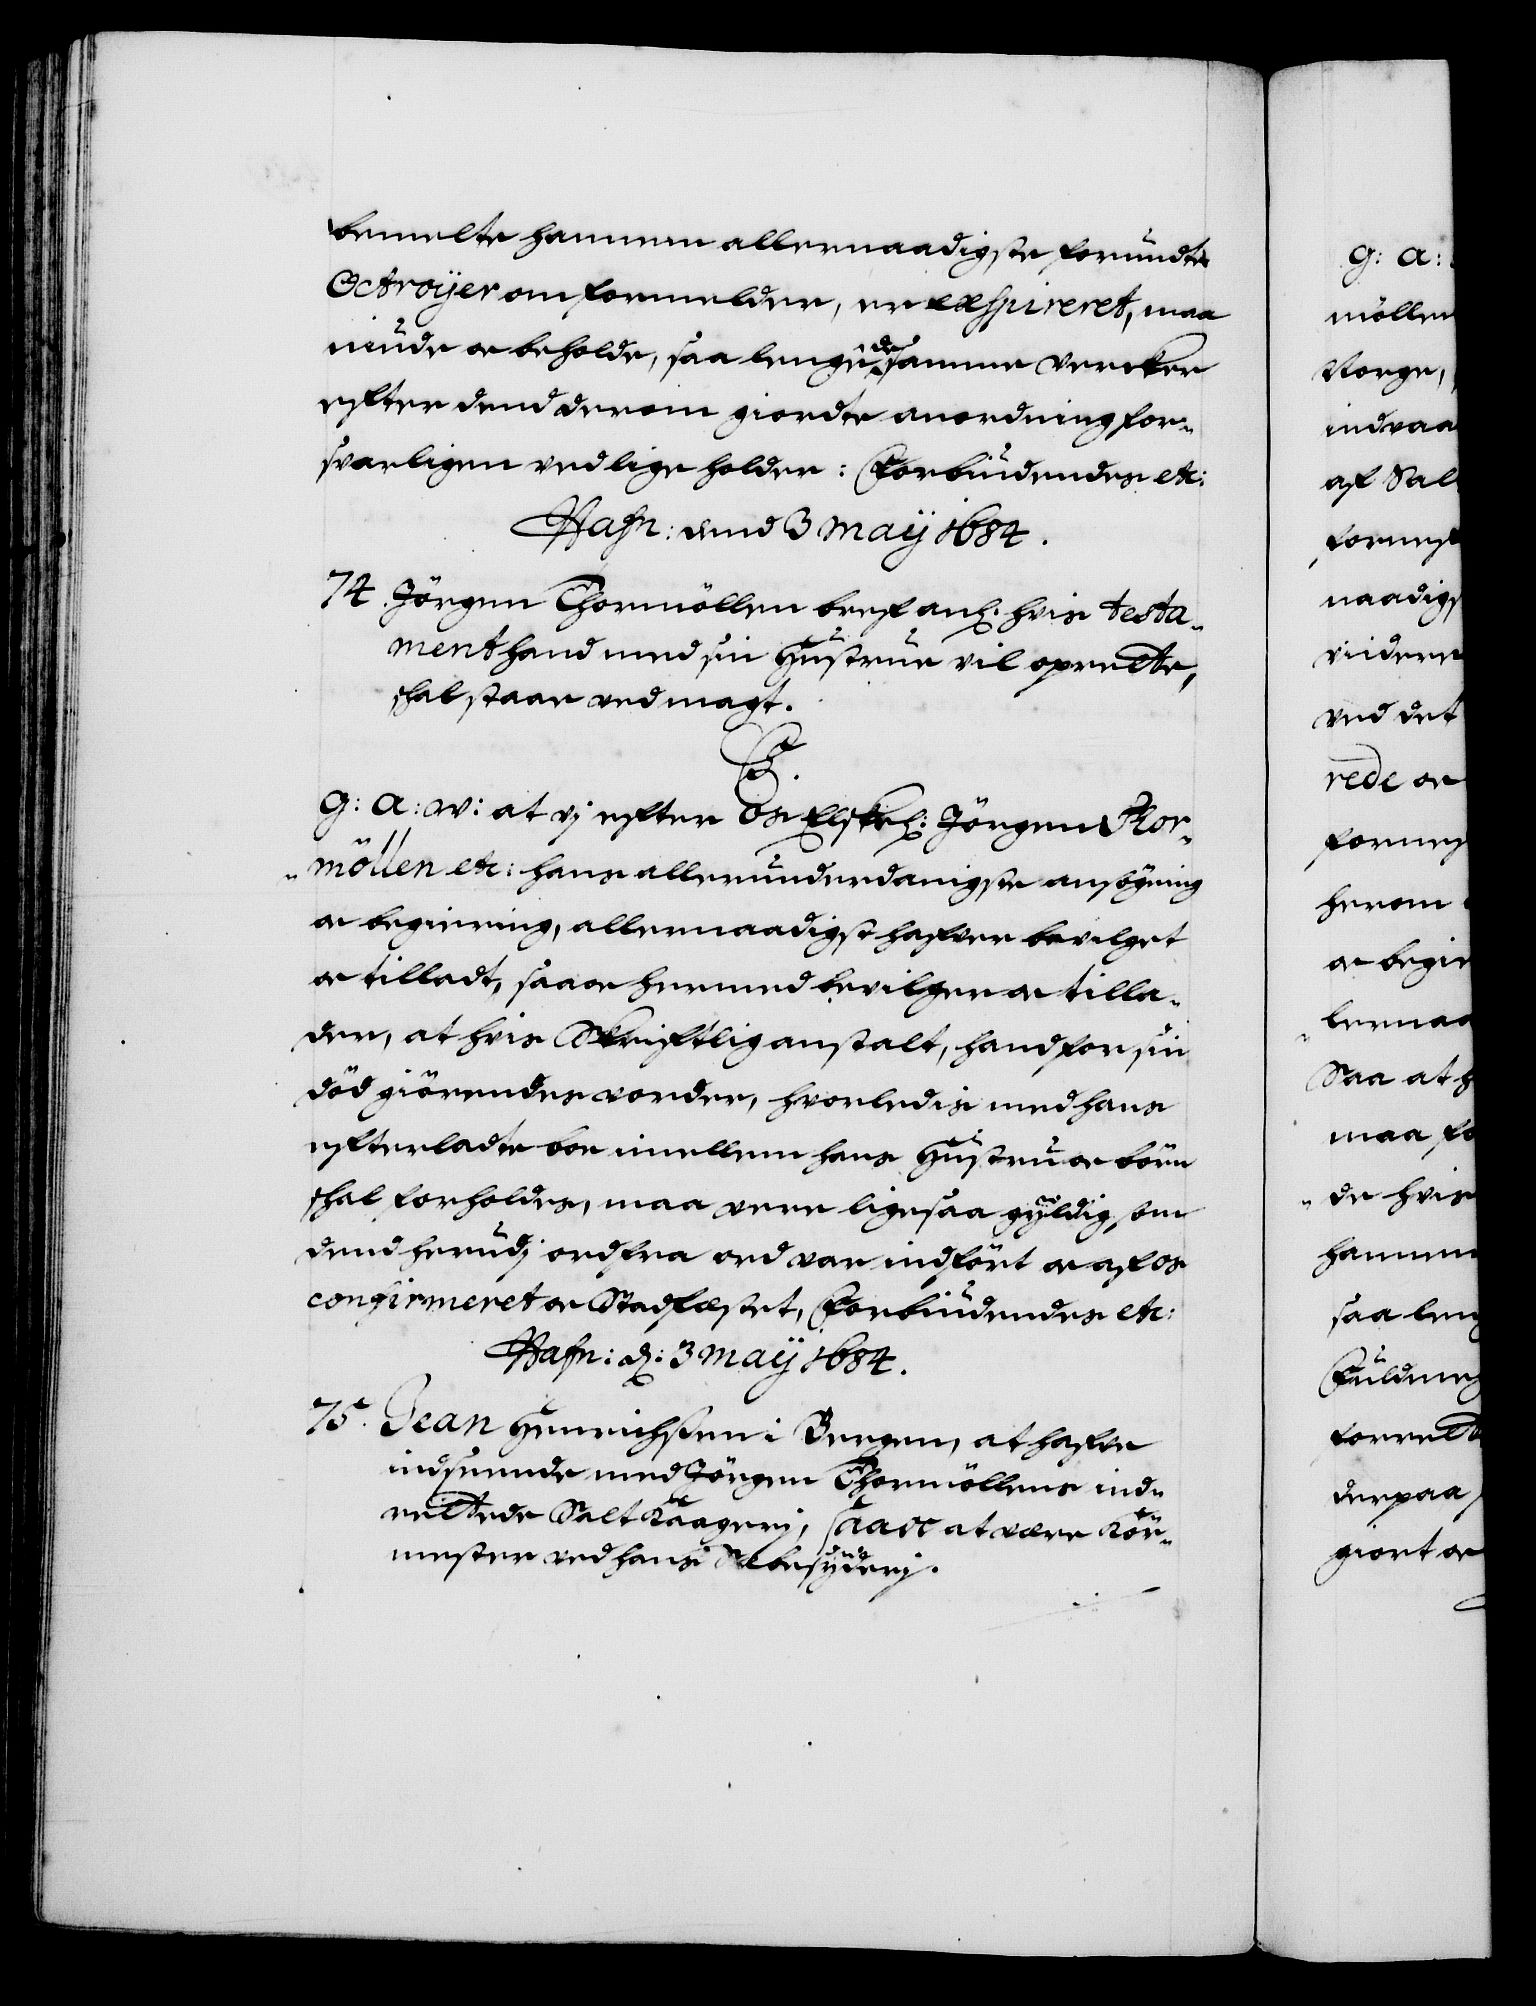 bemelte hannem allernaadigste forundte
Octroyer om formelder, er exspireret, maa
niude oc beholde, saa lenge de samme vercker
efter dend derom giordte anordning for-
svarligen vedlige holder: Forbiudendes etc:
Hafn: dend 3 may 1684.
74. Jörgen Thormöllen bref anl. hvis testa-
ment hand med sin Hustrue vil oprette,
skal staae ved magt.
C5.
G: A: W: at vj efter Os Elskel: Jörgen Thor-
möllen etc: hans allerunderdanigste ansögning
oc begiering, allernaadigst hafver bevilget
oc tilladt, saa oc hermed bevilger oc tilla-
der, at hvis Skriftlig anstalt, hand for sin
död giörendes vorder, hvorledis med hans
efterladte boe imellem hans Hustru oc börn
skal forholdes, maa vere ligesaa gyldig, som
dend herudj ord fra ord var indfört oc af os
confirmeret oc Stadfæstet, Forbiudendes etc:
Hafn: d: 3 may 1684.
75. Jean Henrichsen i Bergen, at hafve
indseende med Jörgen Thormöllens ind-
rettede Salt Kaagerj, saa oc at være Kör-
mester ved hans Sæbesyderj.
G: A:
möllen
Norge,
indvaa
af Sal
formed
naadigs
videre
ved det
rede oc
formed
herom
oc begie
lernaa
Saa at h
maa fo
de hvis
hannem
saa leng
Fuldmeg
forrett
derpaa
giort oc